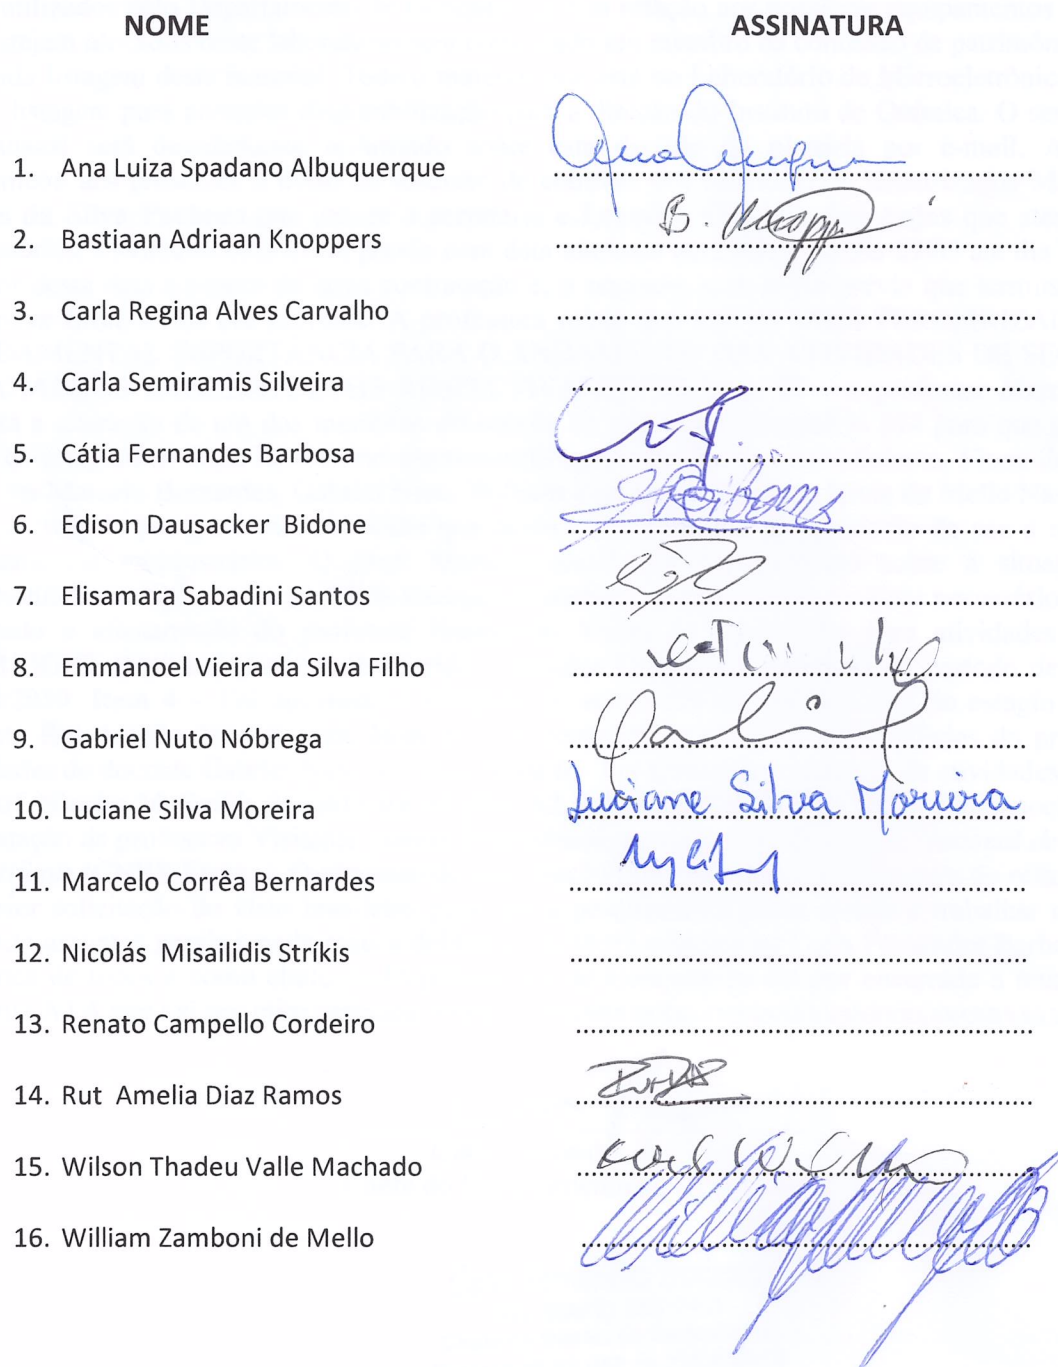 NOME ASSINATURA
1. Ana Luiza Spadano Albuquerque ....................
2. Bastiaan Adriaan Knoppers B. Knoppers ....................
3. Carla Regina Alves Carvalho ....................
4. Carla Semiramis Silveira ....................
5. Cátia Fernandes Barbosa ....................
6. Edison Dausacker  Bidone ....................
7. Elisamara Sabadini Santos ....................
8. Emmanoel Vieira da Silva Filho ....................
9. Gabriel Nuto Nóbrega ....................
10. Luciane Silva Moreira Luciane Silva Moreira ....................
11. Marcelo Corrêa Bernardes ....................
12. Nicolás  Misailidis Stríkis ....................
13. Renato Campello Cordeiro ....................
14. Rut  Amelia Diaz Ramos ....................
15. Wilson Thadeu Valle Machado ....................
16. William Zamboni de Mello ....................